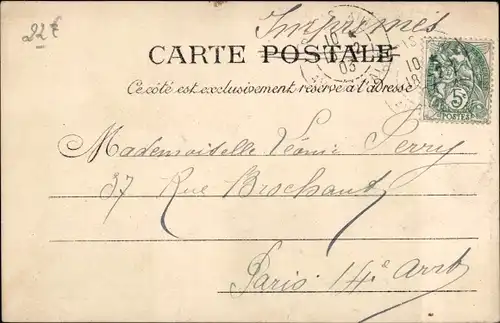 22 €
Imprimés
CARTE POSTALE
Ce côté est exclusivement réservé à l'adresse
10
03
15
10
5
POSTES
Mademoiselle Léonie Perry
37 Rue Brochant
Paris 14e Arrt